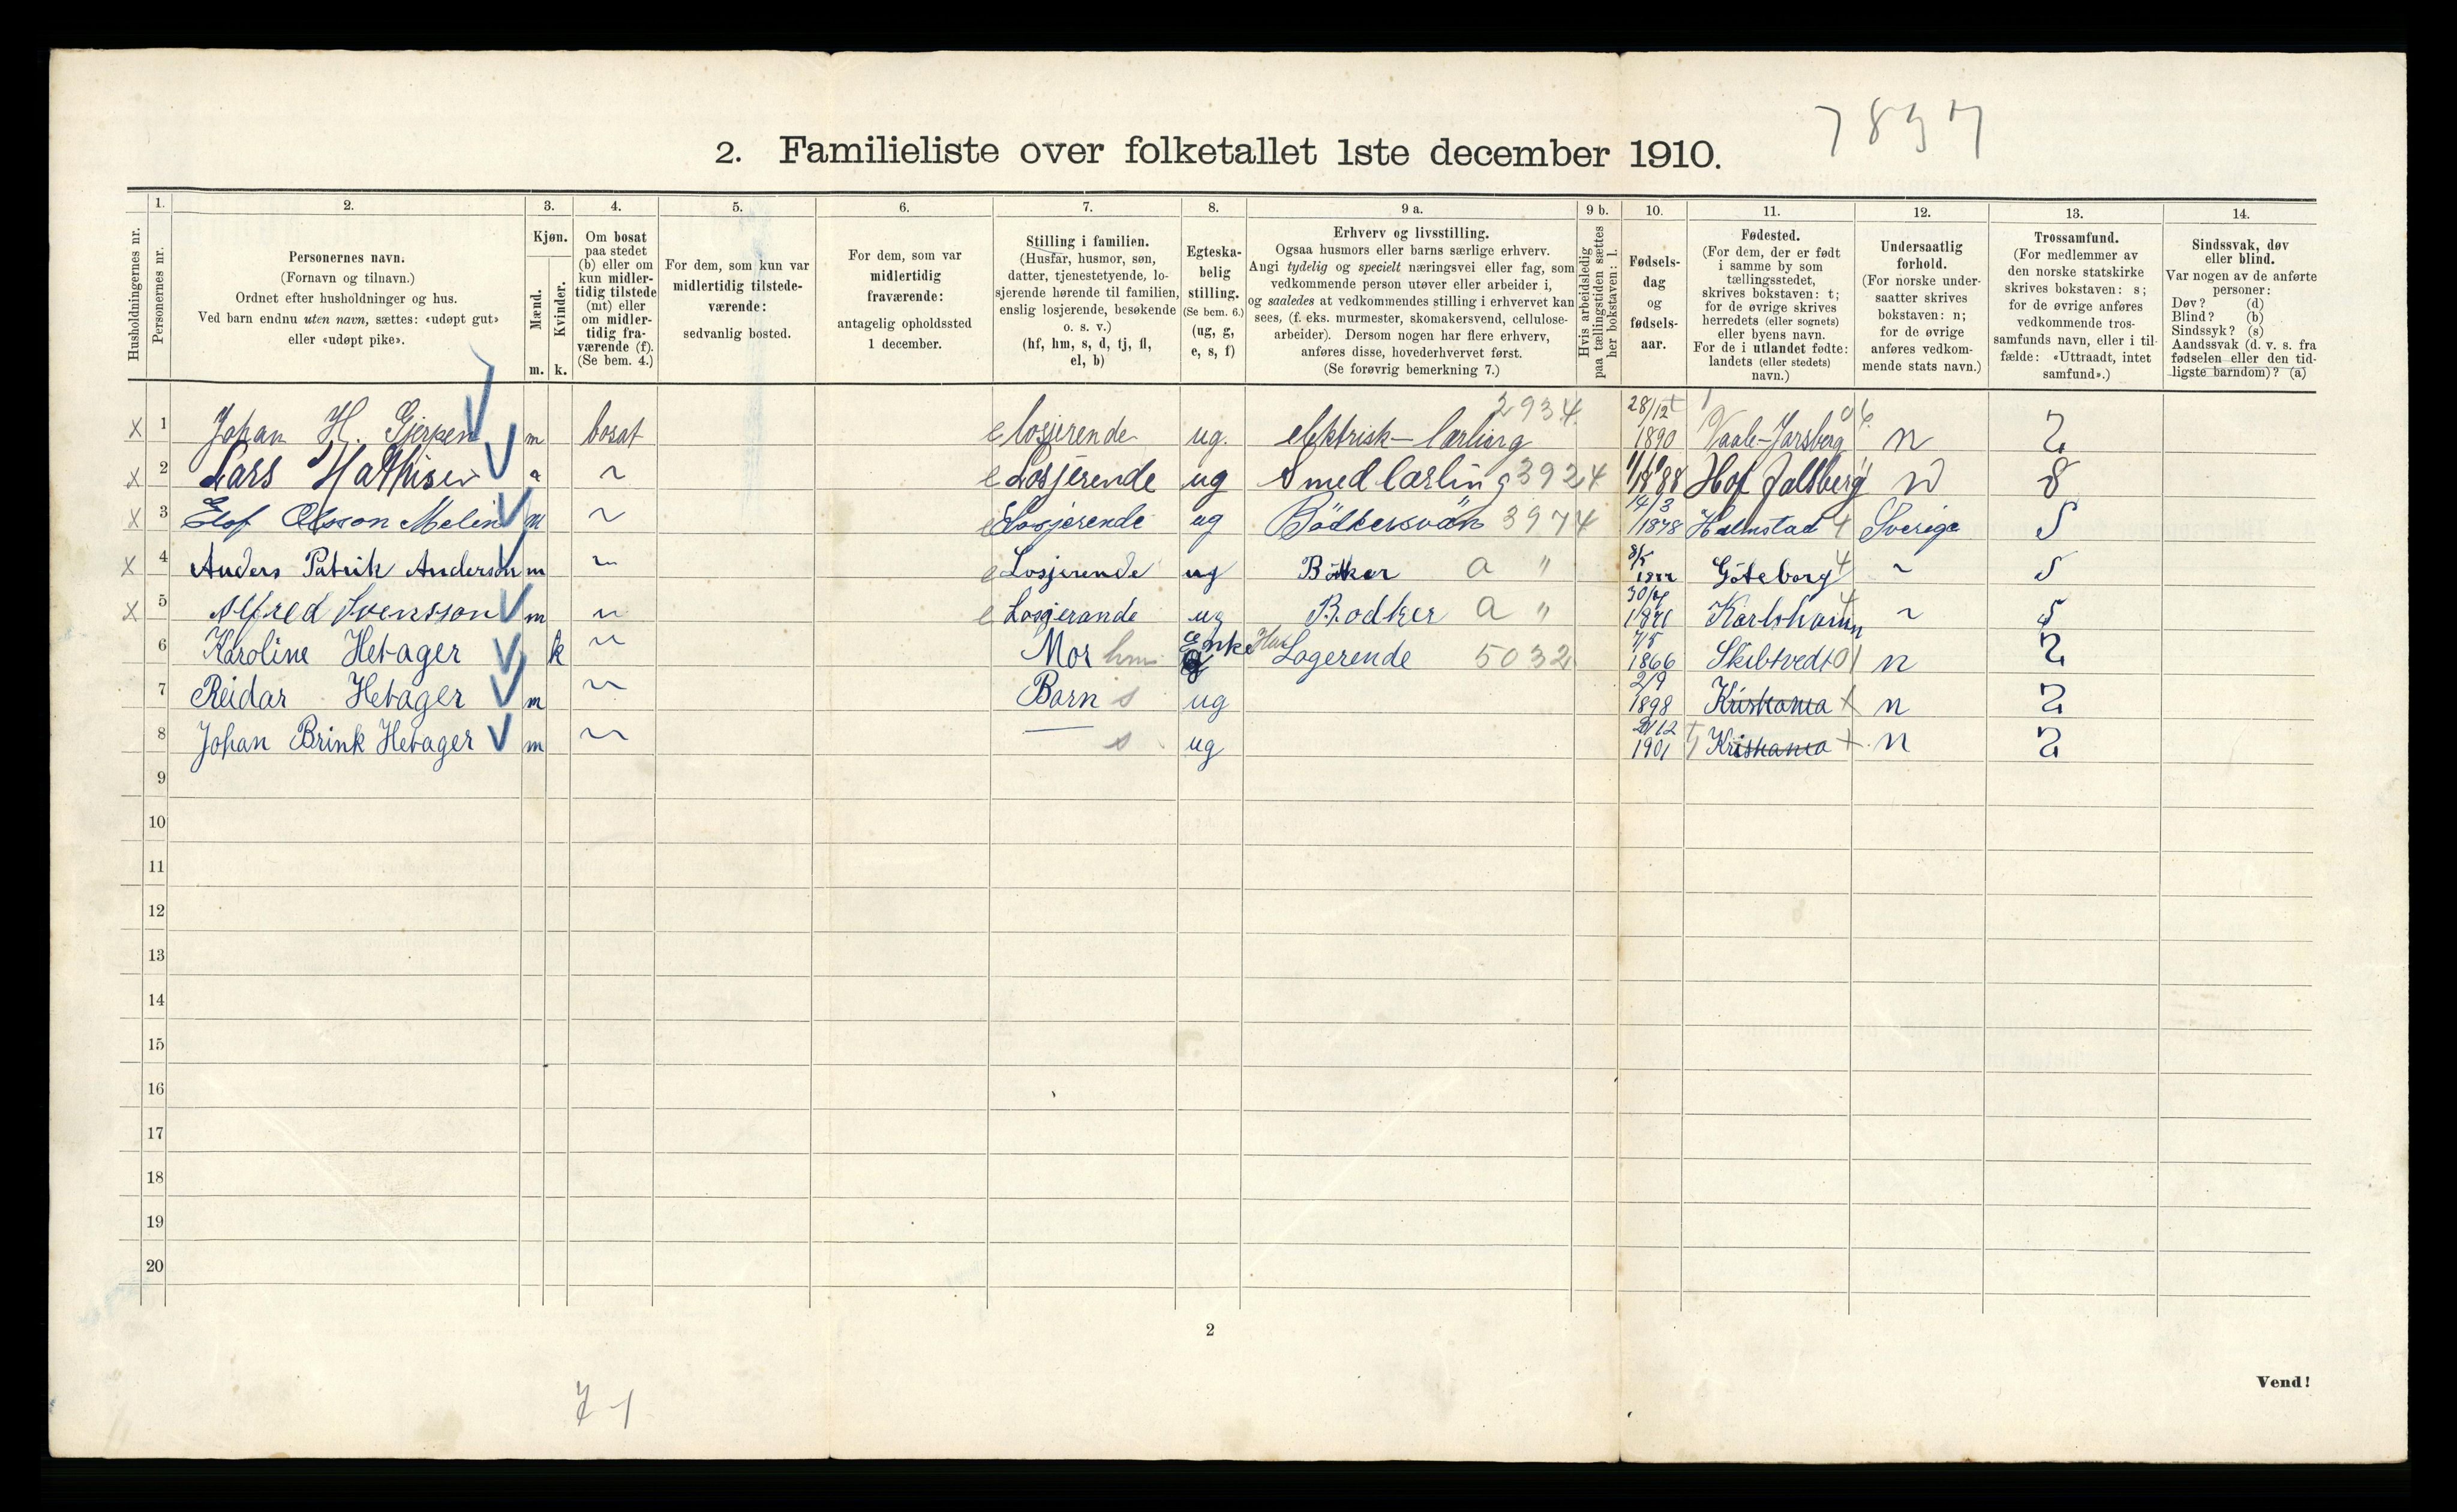 7897
2. Familieliste over folketallet 1ste december 1910.
Husholdningernes nr.
Personernes nr.
1.
2.
Personernes navn.
(Fornavn og tilnavn.)
Ordnet efter husholdninger og hus.
Ved barn endnu uten navn, sættes: «udøpt gut»
eller «udøpt pike».
3.
Kjøn.
Mænd.
Kvinder.
m. k.
4.
Om bosat
paa stedet
(b) eller om
kun midler-
tidig tilstede
(mt) eller
om midler-
tidig fra-
værende (f).
(Se bem. 4.)
5.
For dem, som kun var
midlertidig tilstede-
værende:
sedvanlig bosted.
6.
For dem, som var
midlertidig
fraværende:
antagelig opholdssted
1 december.
7.
Stilling i familien.
(Husfar, husmor, søn,
datter, tjenestetyende, lo-
sjerende hørende til familien,
enslig losjerende, besøkende
o. s. v.)
(hf, hm, s, d, tj, fl,
el, b)
8.
Egteska-
belig
stilling.
(Se bem. 6.)
(ug, g,
e, s, f)
9 a.
Erhverv og livsstilling.
Ogsaa husmors eller barns særlige erhverv.
Angi tydelig og specielt næringsvei eller fag, som
vedkommende person utøver eller arbeider i,
og saaledes at vedkommendes stilling i erhvervet kan
sees, (f. eks. murmester, skomakersvend, cellulose-
arbeider). Dersom nogen har flere erhverv,
anføres disse, hovederhvervet først.
(Se forøvrig bemerkning 7.)
9 b.
Hvis arbeidsledig
paa tællingstiden sættes
her bokstaven: l.
10.
Fødsels-
dag
og
fødsels-
aar.
11.
Fødested.
(For dem, der er født
i samme by som
tællingsstedet,
skrives bokstaven: t;
for de øvrige skrives
herredets (eller sognets)
eller byens navn.
For de i utlandet fødte:
landets (eller stedets)
navn.)
12.
Undersaatlig
forhold.
(For norske under-
saatter skrives
bokstaven: n;
for de øvrige
anføres vedkom-
mende stats navn.)
13.
Trossamfund.
(For medlemmer av
den norske statskirke
skrives bokstaven: s;
for de øvrige anføres
vedkommende tros-
samfunds navn, eller i til-
fælde: «Uttraadt, intet
samfund».)
14.
Sindssvak, døv
eller blind.
Var nogen av de anførte
personer:
Døv? (d)
Blind? (b)
Sindssyk? (s)
Aandssvak (d. v. s. fra
fødselen eller den tid-
ligste barndom)? (a)
x 1 Johan H. Gjerpen m bosat e losjerende ug. elektrisk-lærling 2934 28/12 1890 Vaale-Jarsberg 06 n S
x 2 Lars Mathisen ~ e Losjerende ug Smedlærling 3924 1888 Hof n S
x 3 Elof Olsson Melin m ~ e Losjerende ug Bödkersvän 3974 14/3 1878 Halmstad 4 Sverige S
x 4 Anders Patrik Anderson m ~ e Losjerende ug Böker a " Göteborg 4 ~ S
x 5 Alfred Svensson m ~ e Losjerande ug Bødker a " 1871 Karlshamn ~ S
6 Karoline Hetager k ~ Mor hm Enke Hus Logerende 5032 7/5 1866 Skibtvedt 01 n S
7 Reidar Hetager m ~ Barn s ug 2/9 1898 Kristiania t n S
8 Johan Brink Hetager m ~ — s ug 21/12 1901 t Kristiania t n S
9
10
11
12
13
14
15
16
17
18
19
20
2
Vend!
7-1